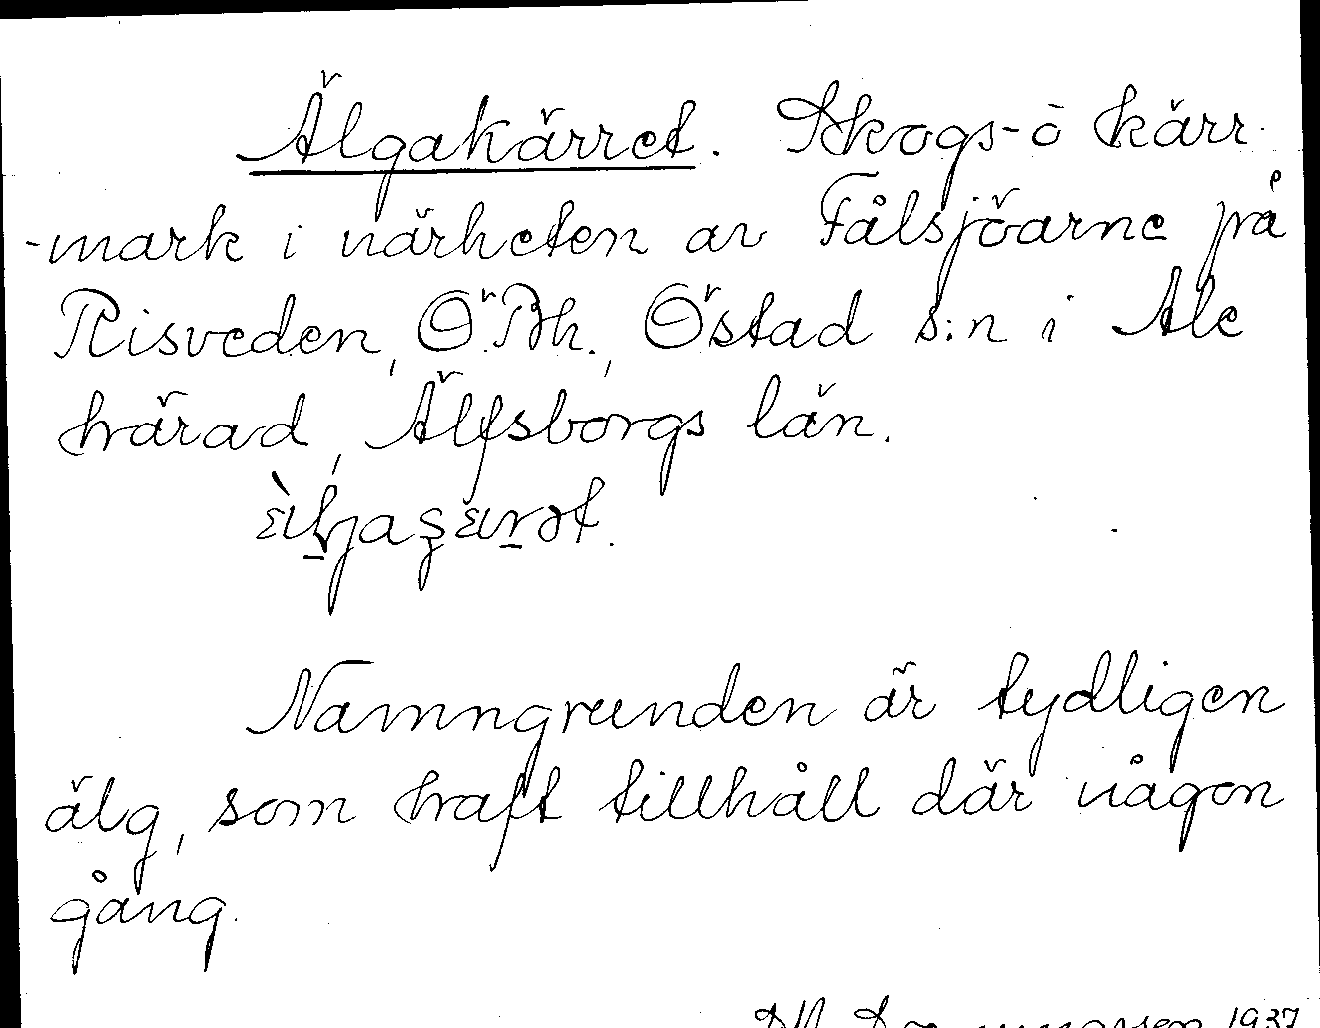 Älgakärret. Skogs- o kärr-
-mark i närheten av Fålsjöarne på
Risveden, Ö. Bh., Östad s:n i Ale
härad, Älfsborgs län.
Namngrunden är tydligen
älg, som haft tillhåll där någon
gång.
1937